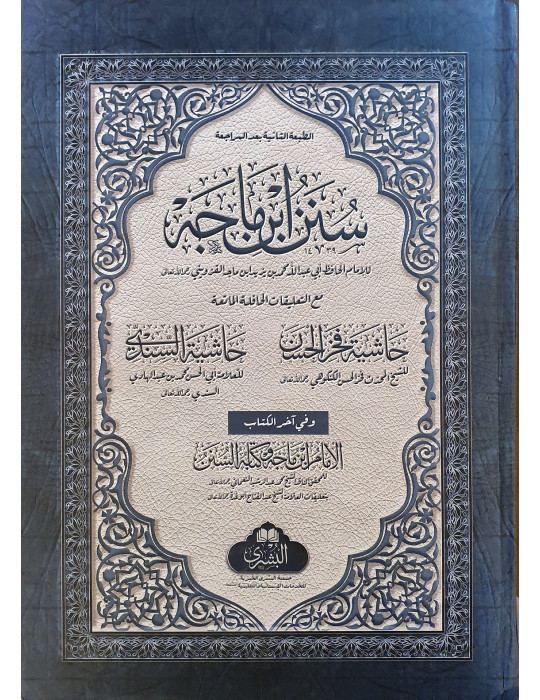 الطبعة الثانية بعد المراجعة
سُنَنُ ابْنِ مَاجَه
للإمام الحافظ أبي عبد الله محمد بن يزيد ابن ماجه القزويني رحمه الله تعالى
مع التعليقات الحافلة الماتعة
حاشية فخر الحسن
للشيخ المحدث فخر الحسن الكنكوهي رحمه الله تعالى
حاشية السندي
للعلامة أبي الحسن محمد بن عبد الهادي
السندي رحمه الله تعالى
وفي آخر الكتاب
الإمام ابن ماجه وكتابه السنن
للمحقق الناقد الشيخ محمد عبد الرشيد النعماني رحمه الله تعالى
بتعليقات العلامة الشيخ عبد الفتاح أبو غدة رحمه الله تعالى
البشرى